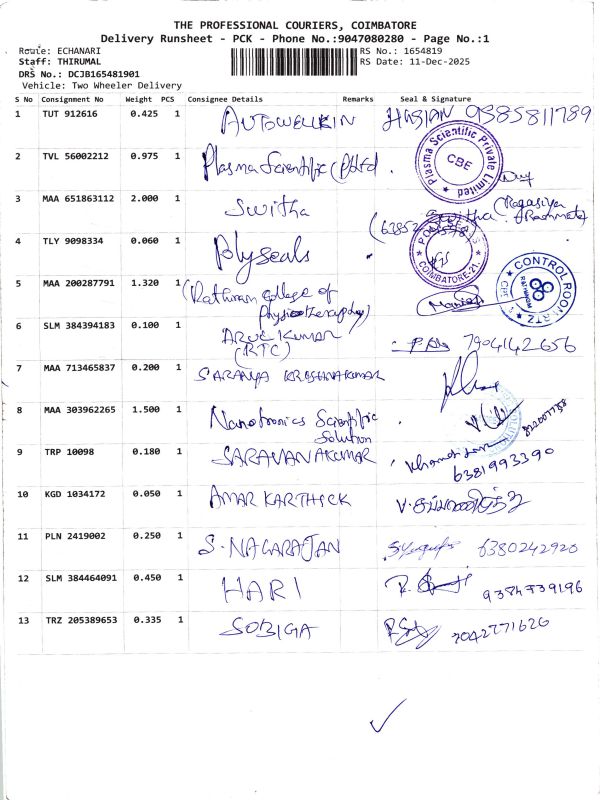 THE PROFESSIONAL COURIERS, COIMBATORE
Delivery Runsheet - PCK - Phone No.:9047080280 - Page No.:1
Route: ECHANARI RS No.: 1654819
Staff: THIRUMAL RS Date: 11-Dec-2025
DRS No.: DCJB165481901
Vehicle: Two Wheeler Delivery
S No Consignment No Weight PCS Consignee Details Remarks Seal & Signature
1 TUT 912616 0.425 1 AUTOWELLKIN 9385811789
2 TVL 56002212 0.975 1 Plasma Scientific (P) Ltd.
Plasma Scientific Private Limited
CBE
3 MAA 651863112 2.000 1 Switha Switha
4 TLY 9098334 0.060 1 Polyseals
COIMBATORE-21.
5 MAA 200287791 1.320 1 (Rathinam College of
Physiotherapy)
CONTROL ROOM
6 SLM 384394183 0.100 1 ARUL KUMAR
(RTC) 7904142656
7 MAA 713465837 0.200 1 SARANYA KRISHNAKUMAR
8 MAA 303962265 1.500 1 Nanotronics Scientific
Solution
9 TRP 10098 0.180 1 SARAVANAKUMAR
6381993390
10 KGD 1034172 0.050 1 AMAR KARTHICK
11 PLN 2419002 0.250 1 S. NAGARAJAN 6380242920
12 SLM 384464091 0.450 1 HARI 9384739196
13 TRZ 205389653 0.335 1 SOBIGA